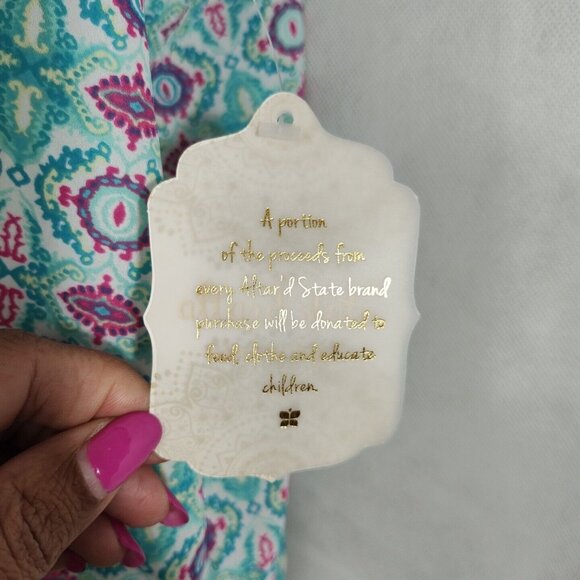 A portion
of the proceeds from
every Altar'd State brand
purchase will be donated to
feed, clothe and educate
children.